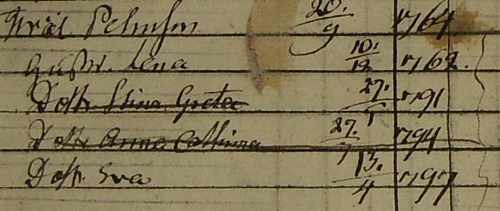 Pehrsson 20/9 1764
Hustr. Lena 10/12 1762.
Dottr Stina Greta 27/1 1791
Dottr Anna Cathrina 27/7 1794
Dottr Eva 13/4 1797